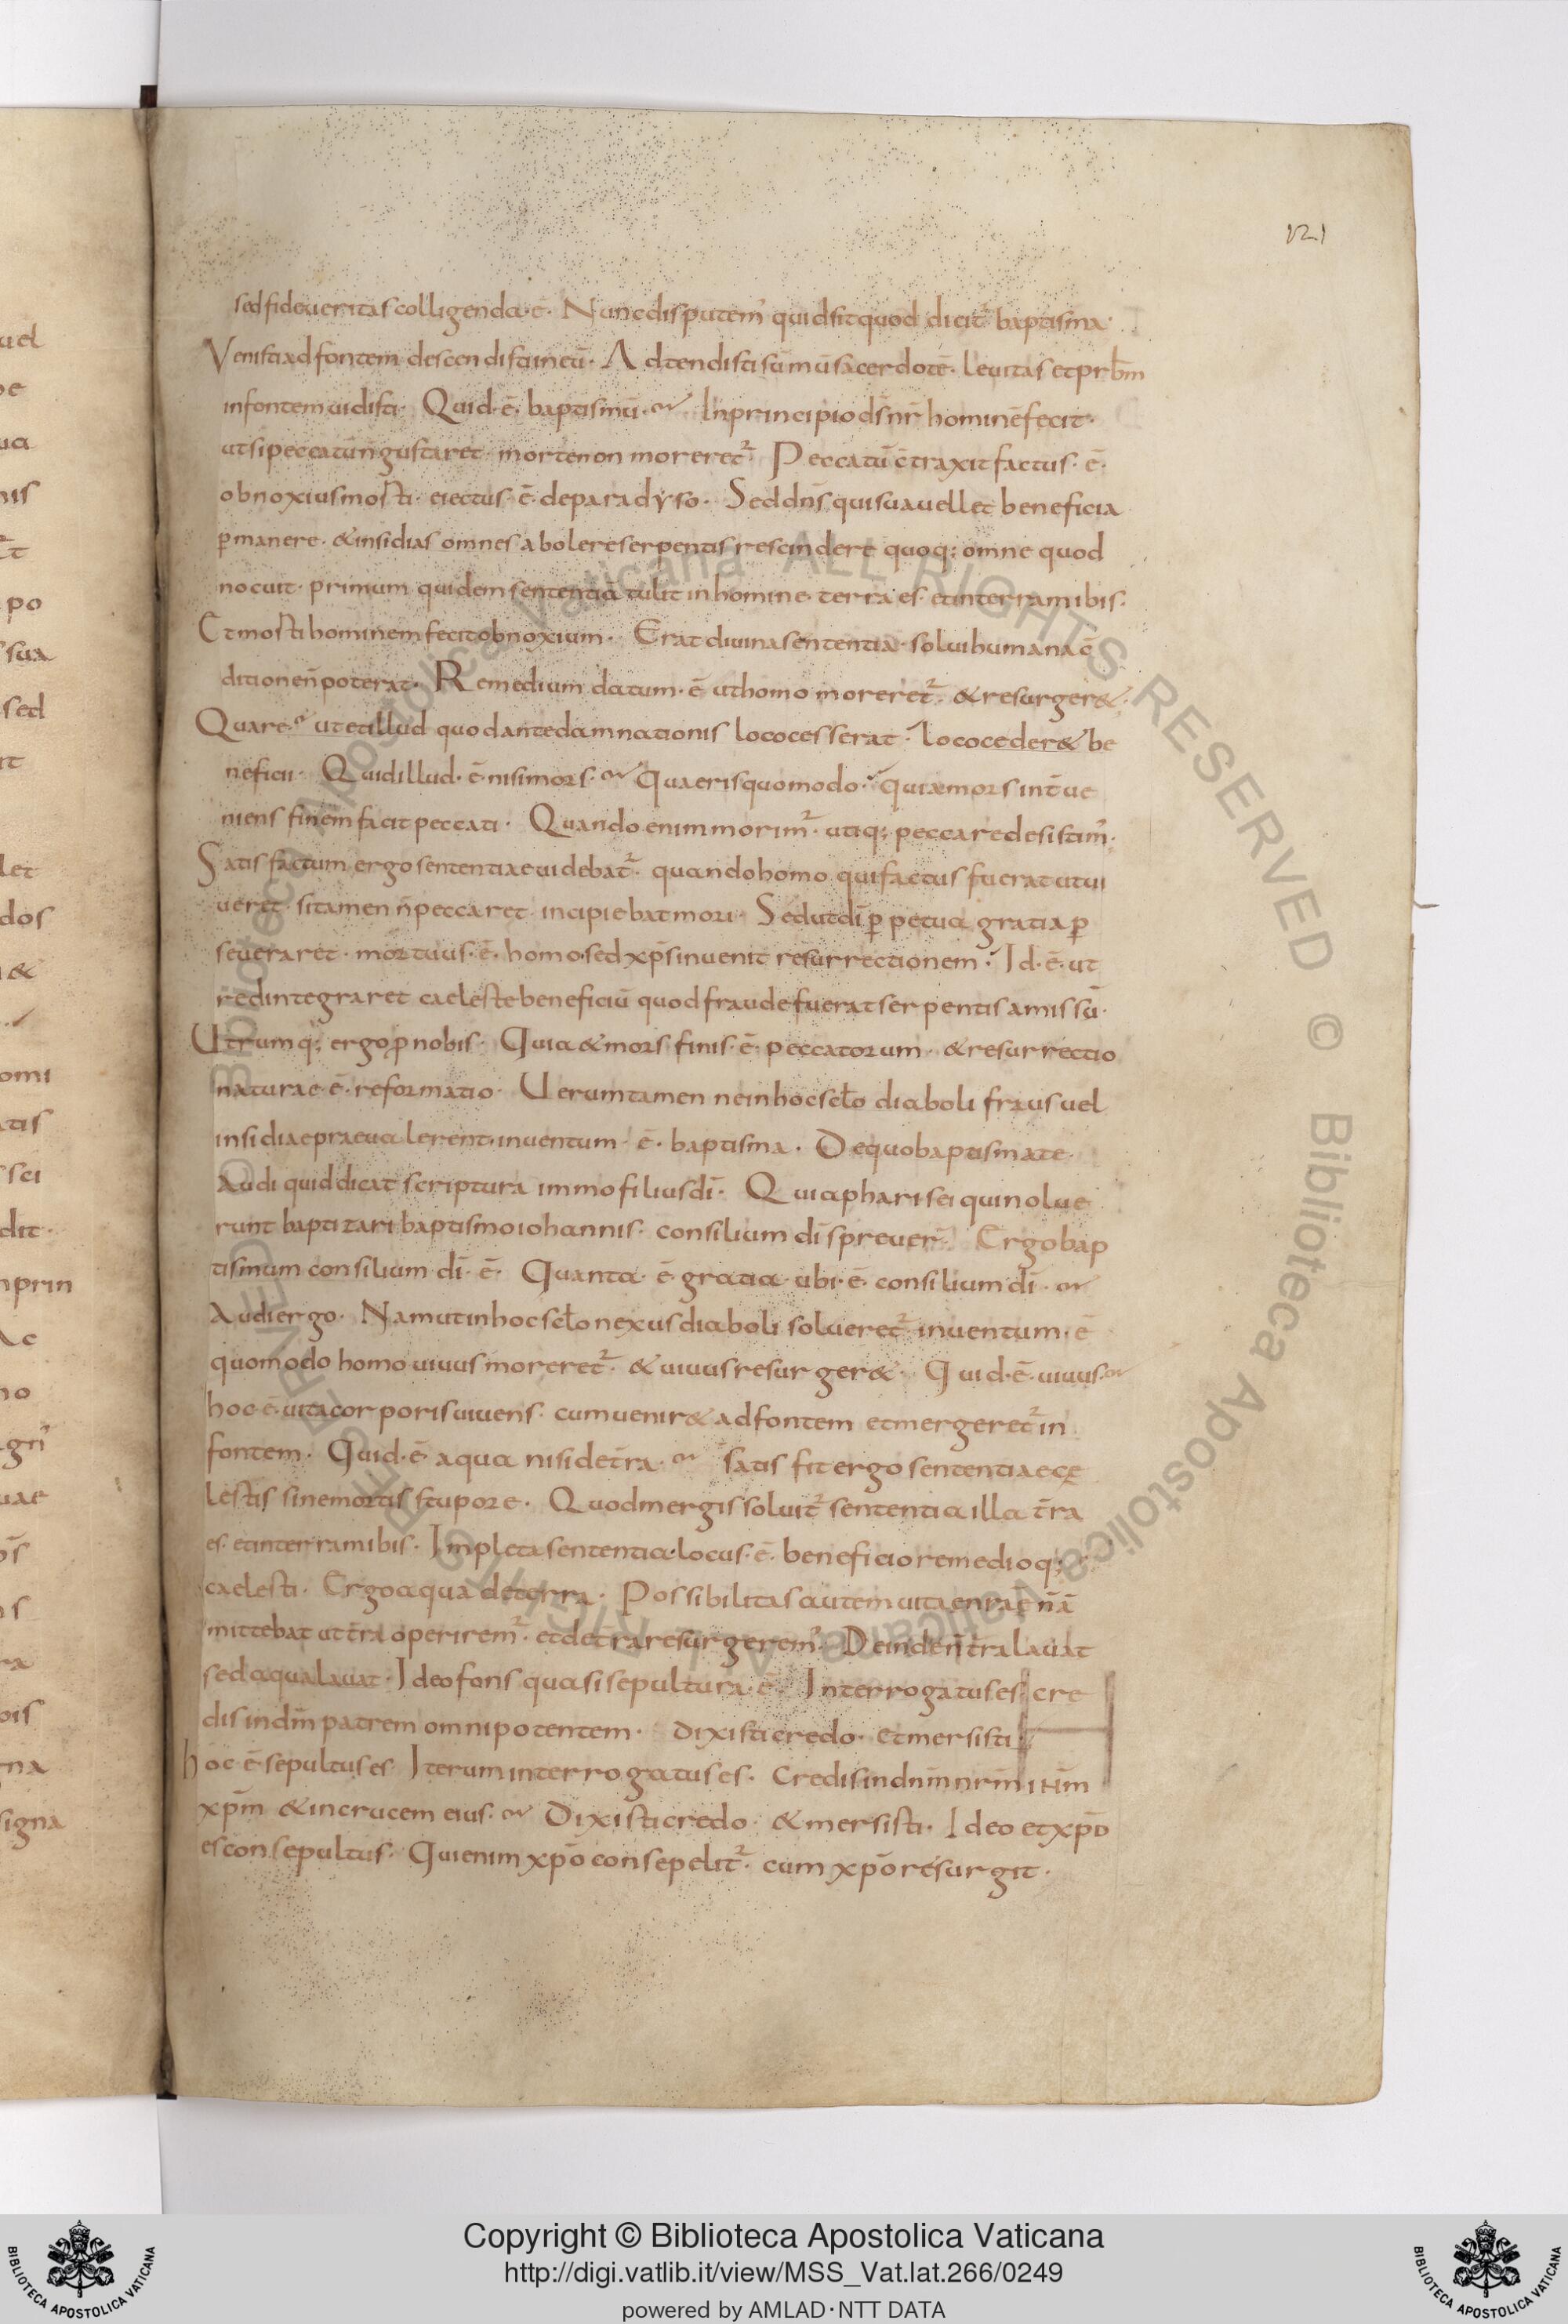 121
sed fide ueritas colligenda·ē· Nunc disputem᾽ quid sit quod dicit᾽ baptisma·
Venisti ad fontem descendisti in eū· Adtendisti sūmū sacerdotē· leuitas et prb̄m
in fontem uidisti· Quid·ē· baptismū· In principio d̄s n̄r hominē fecit·
ut si peccatū n̄ gustaret· morte non moreret᾽· Peccatū c̄traxit factus·ē·
obnoxius morti· eiectus·ē· de paradyso· Sed dn̄s qui sua uellet beneficia
ꝑmanere· & insidias omnes abolere serpentis rescindere quoq; omne quod
nocuit· primum quidem sententiā tulit in homine· terra es· et in terram ibis·
Et morti hominem fecit obnoxium· Erat diuina sententia· solui humana c̄
ditione n̄ poterat· Remedium datum·ē ut homo moreret᾽· & resurger&·
Quare· ut et illud quod ante damnationis loco cesserat· loco ceder& be
neficii· Quid illud·ē· nisi mors· Quaeris quomodo· quia mors int̄ue
niens finem facit peccati· Quando enim morim᾽· utiq; peccare desistim᾽·
Satis factum ergo sententiae uidebat᾽· quando homo qui factus fuerat ut ui
ueret· si tamen n̄ peccaret· incipiebat mori· Sed ut dī ꝑpetua gratia ꝑ
seueraret· mortuus·ē· homo· sed xp̄s inuenit resurrectionem· Id·ē· ut
redintegraret caeleste beneficiū quod fraude fuerat serpentis amissū·
Utrumq; ergo ꝓ nobis· Quia & mors finis·ē· peccatorum· & resurrectio
naturae·ē· reformatio· Uerumtamen ne in hoc sclo diaboli fraus uel
insidiae praeualerent· inuentum·ē· baptisma· De quo baptismate·
Audi quid dicat scriptura immo filius dī· Quia pharisei qui nolue
runt baptizari baptismo iohannis· consilium dī spreuer̄· Ergo bap
tismum consilium dī·ē· Quanta·ē· gratia· ubi·ē· consilium dī·
Audi ergo· Nam ut in hoc sclo nexus diaboli solueret᾽ inuentum·ē
quomodo homo uiuus moreret᾽· & uiuus resurger&· Quid·ē· uiuus·
hoc·ē· uita corporis uiuens· cum uenir& ad fontem et mergeret᾽ in
fontem· Quid·ē· aqua nisi de t̄ra· Satis fit ergo sententiae cę
lestis sine mortis stupore· Quod mergis soluit᾽ sententia illa t̄ra
es· et in terram ibis· Impleta sententia· locus·ē· beneficio remedioq;
caelesti· Ergo aqua de terra· Possibilitas autem uitae n̄rae n̄ ā
mittebat ut t̄ra operirem᾽· et de t̄ra resurgerem᾽· Deinde n̄ t̄ra lauat
sed aqua lauat· Ideo fons quasi sepultura·ē· Interrogatus es· cre
dis in dm̄ patrem omnipotentem· dixisti credo· et mersisti
hoc·ē· sepultus es· Iterum interrogatus es· Credis in dnm̄ nrm̄ ihm̄
xpm̄ & in crucem eius· Dixisti credo· & mersisti· Ideo et xpō
es consepultus· Qui enim xpō consepelit᾽· cum xpō resurgit·
uel
ua
nis
po
sua
sed
it
let
dos
&
omi
atis
sci
dit·
nprin
no
uae
ra
ois
rna
signa
Biblioteca Apostolica Vaticana ALL RIGHTS RESERVED © Biblioteca Apostolica Vaticana ALL RIGHTS RESERVED ©
BIBLIOTECA APOSTOLICA VATICANA
Copyright © Biblioteca Apostolica Vaticana
http://digi.vatlib.it/view/MSS_Vat.lat.266/0249
powered by AMLAD·NTT DATA
BIBLIOTECA APOSTOLICA VATICANA